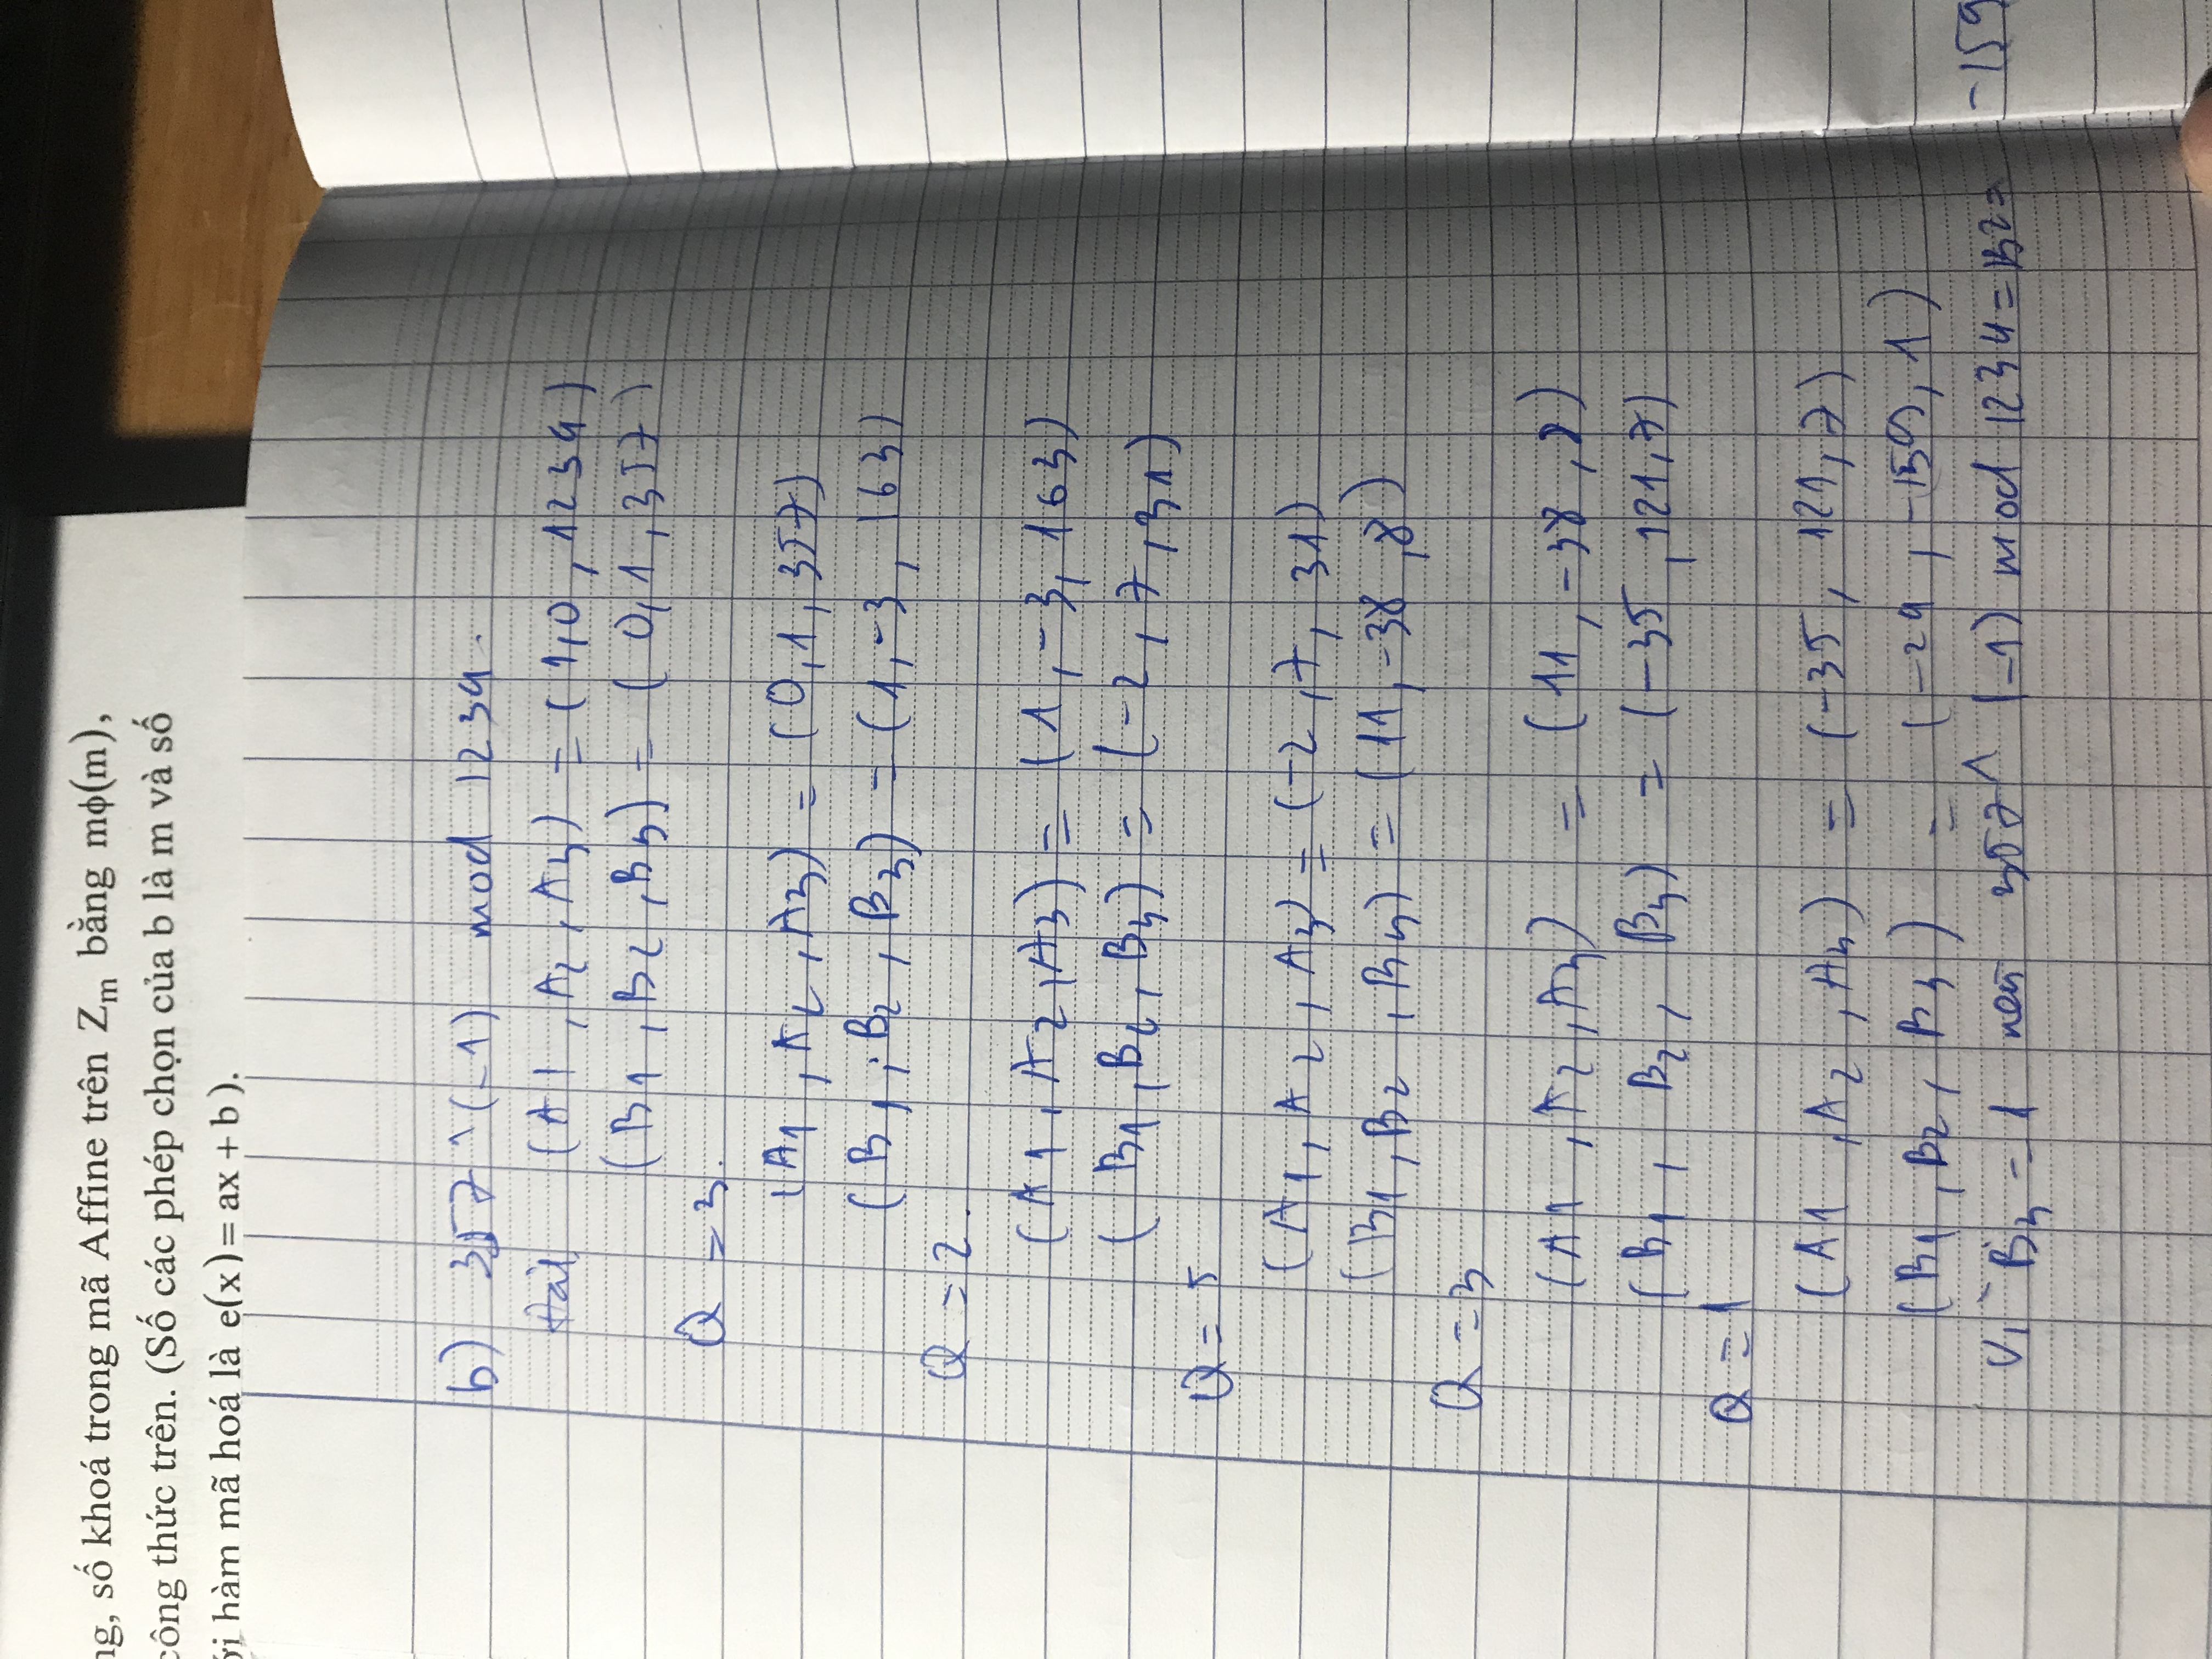 ng, số khoá trong mã Affine trên Zm bằng mϕ(m),
công thức trên. (Số các phép chọn của b là m và số
ới hàm mã hoá là e(x) = ax + b ).
b) 357 ^ (-1) mod 1234.
(A1, A2, A3) = (1, 0, 1234)
(B1, B2, B3) = (0, 1, 357)
Q = 3.
(A1, A2, A3) = (0, 1, 357)
(B1, B2, B3) = (1, -3, 163)
Q = 2.
(A1, A2, A3) = (1, -3, 163)
(B1, B2, B3) = (-2, 7, 31)
Q = 5
(A1, A2, A3) = (-2, 7, 31)
(B1, B2, B3) = (11, -38, 8)
Q = 3
(A1, A2, A3) = (11, -38, 8)
(B1, B2, B3) = (-35, 121, 7)
Q = 1
(A1, A2, A3) = (-35, 121, 7)
(B1, B2, B3) = (-24, -159, 1)
Vì B3 = 1 nên 357 ^ (-1) mod 1234 = B2 = -159